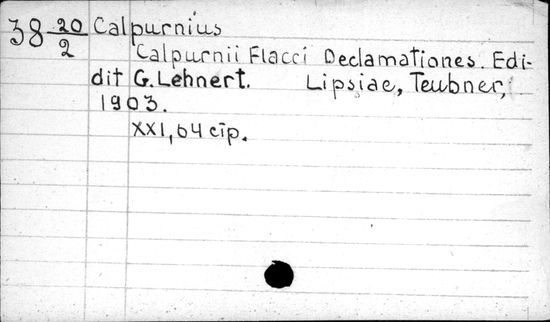 38 20/2 Calpurnius
Calpurnii Flacci Declamationes. Edi-
dit G. Lehnert. Lipsiae, Teubner,
1903.
XXI, 64 стр.